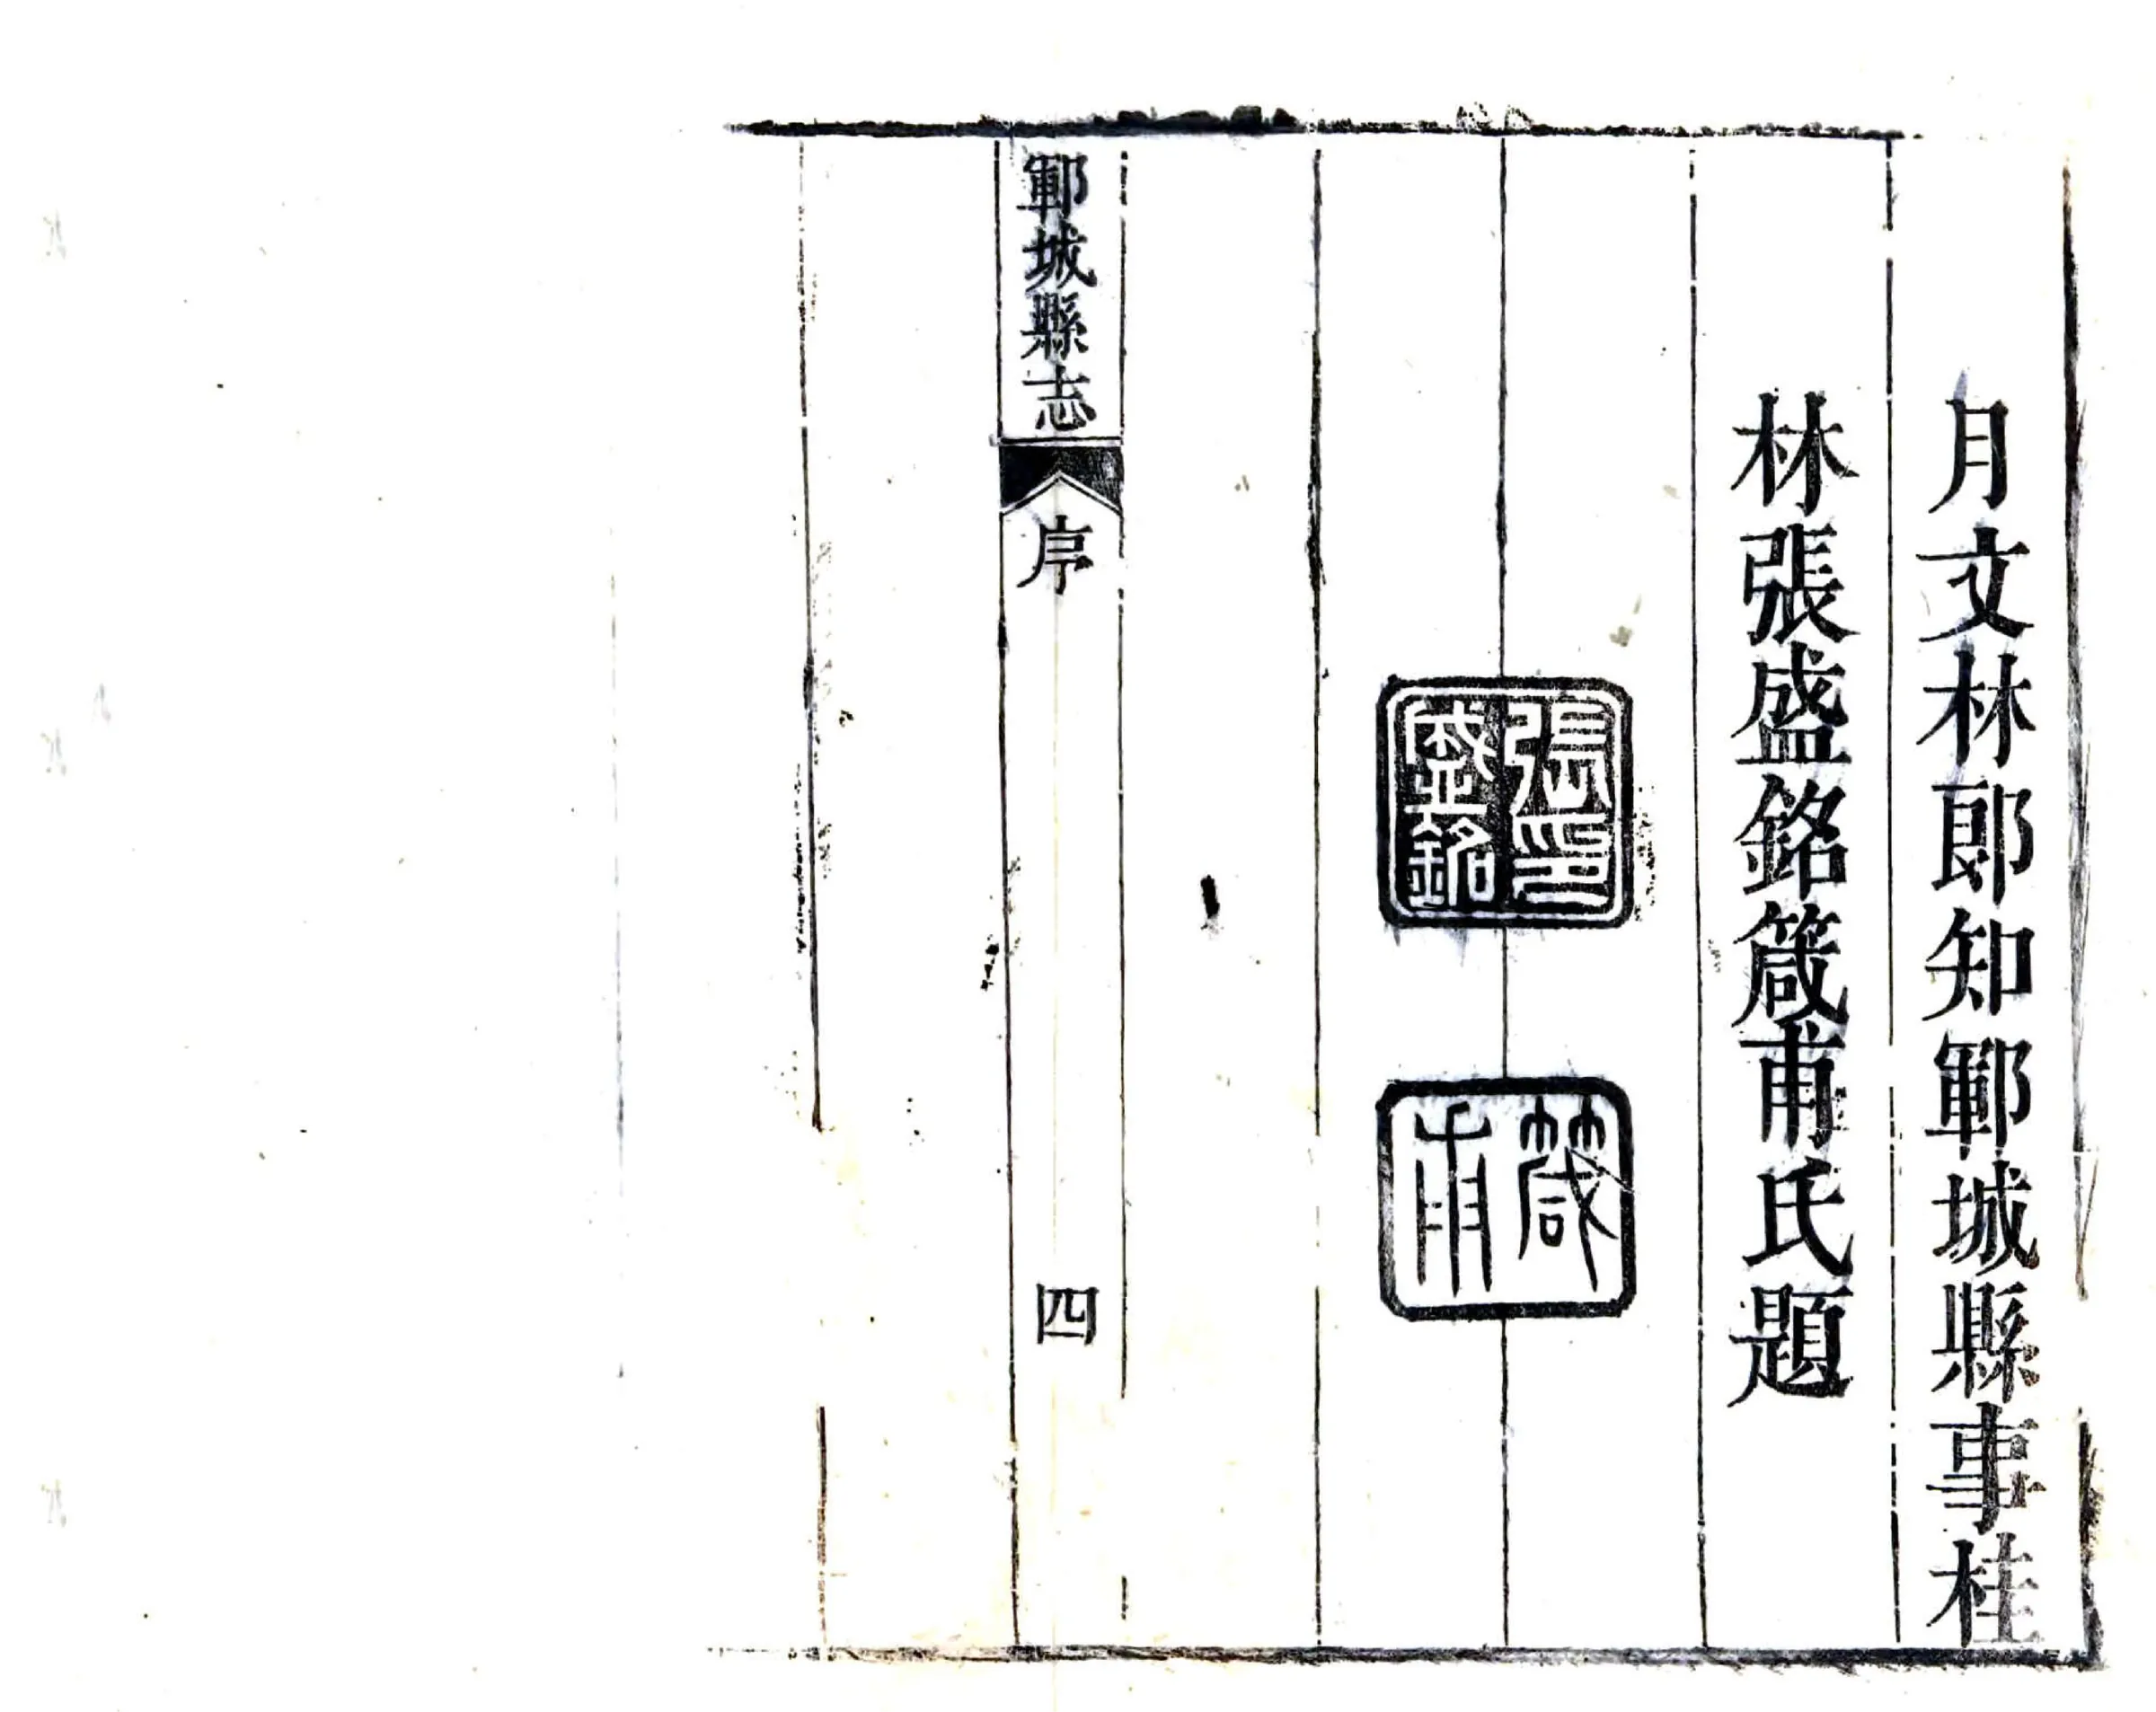 月文林郎知鄆城縣事桂
林張盛銘箴甫氏題
張印
盛銘
箴
甫
鄆城縣志
序
四